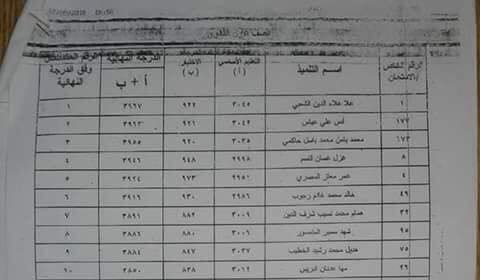 الصف الأول الثانوي
رقم الخاص بالامتحان اسم التلميذ التعليم الأساسي (أ) الاختبار (ب) الدرجة النهائية أ + ب وفق الدرجة النهائية
١ علا علاء الدين الشعبي ٣٠٤٥ ٩٢٢ ٣٩٦٧ ١
١٧٧ أنس علي عباس ٣٠٤٢ ٩٢١ ٣٩٦٣ ٢
١٧٣ محمد يامن محمد باسل حاكمي ٣٠٣٥ ٩٢٠ ٣٩٥٥ ٣
٨ غزل غسان ٢٩٩٨ ٩٤٨ ٣٩٤٦ ٤
٤ عمر معتز المصري ٢٩٥١ ٩٧٣ ٣٩٢٤ ٥
٤٩ خالد محمد رجوب ٢٩٨٦ ٩٣٠ ٣٩١٦ ٦
٣٢ همام محمد نسيب شرف الدين ٣٠٠٩ ٨٨٢ ٣٨٩١ ٧
٩٥ شهد سمير ٣٠٠٦ ٨٨٠ ٣٨٨٦ ٨
٧٥ هديل محمد رشيد الخطيب ٣٠٣٧ ٨٤٧ ٣٨٨٤ ٩
٢٦ مها عدنان ادريس ٣٠١٢ ٨٣٨ ٣٨٥٠ ١٠